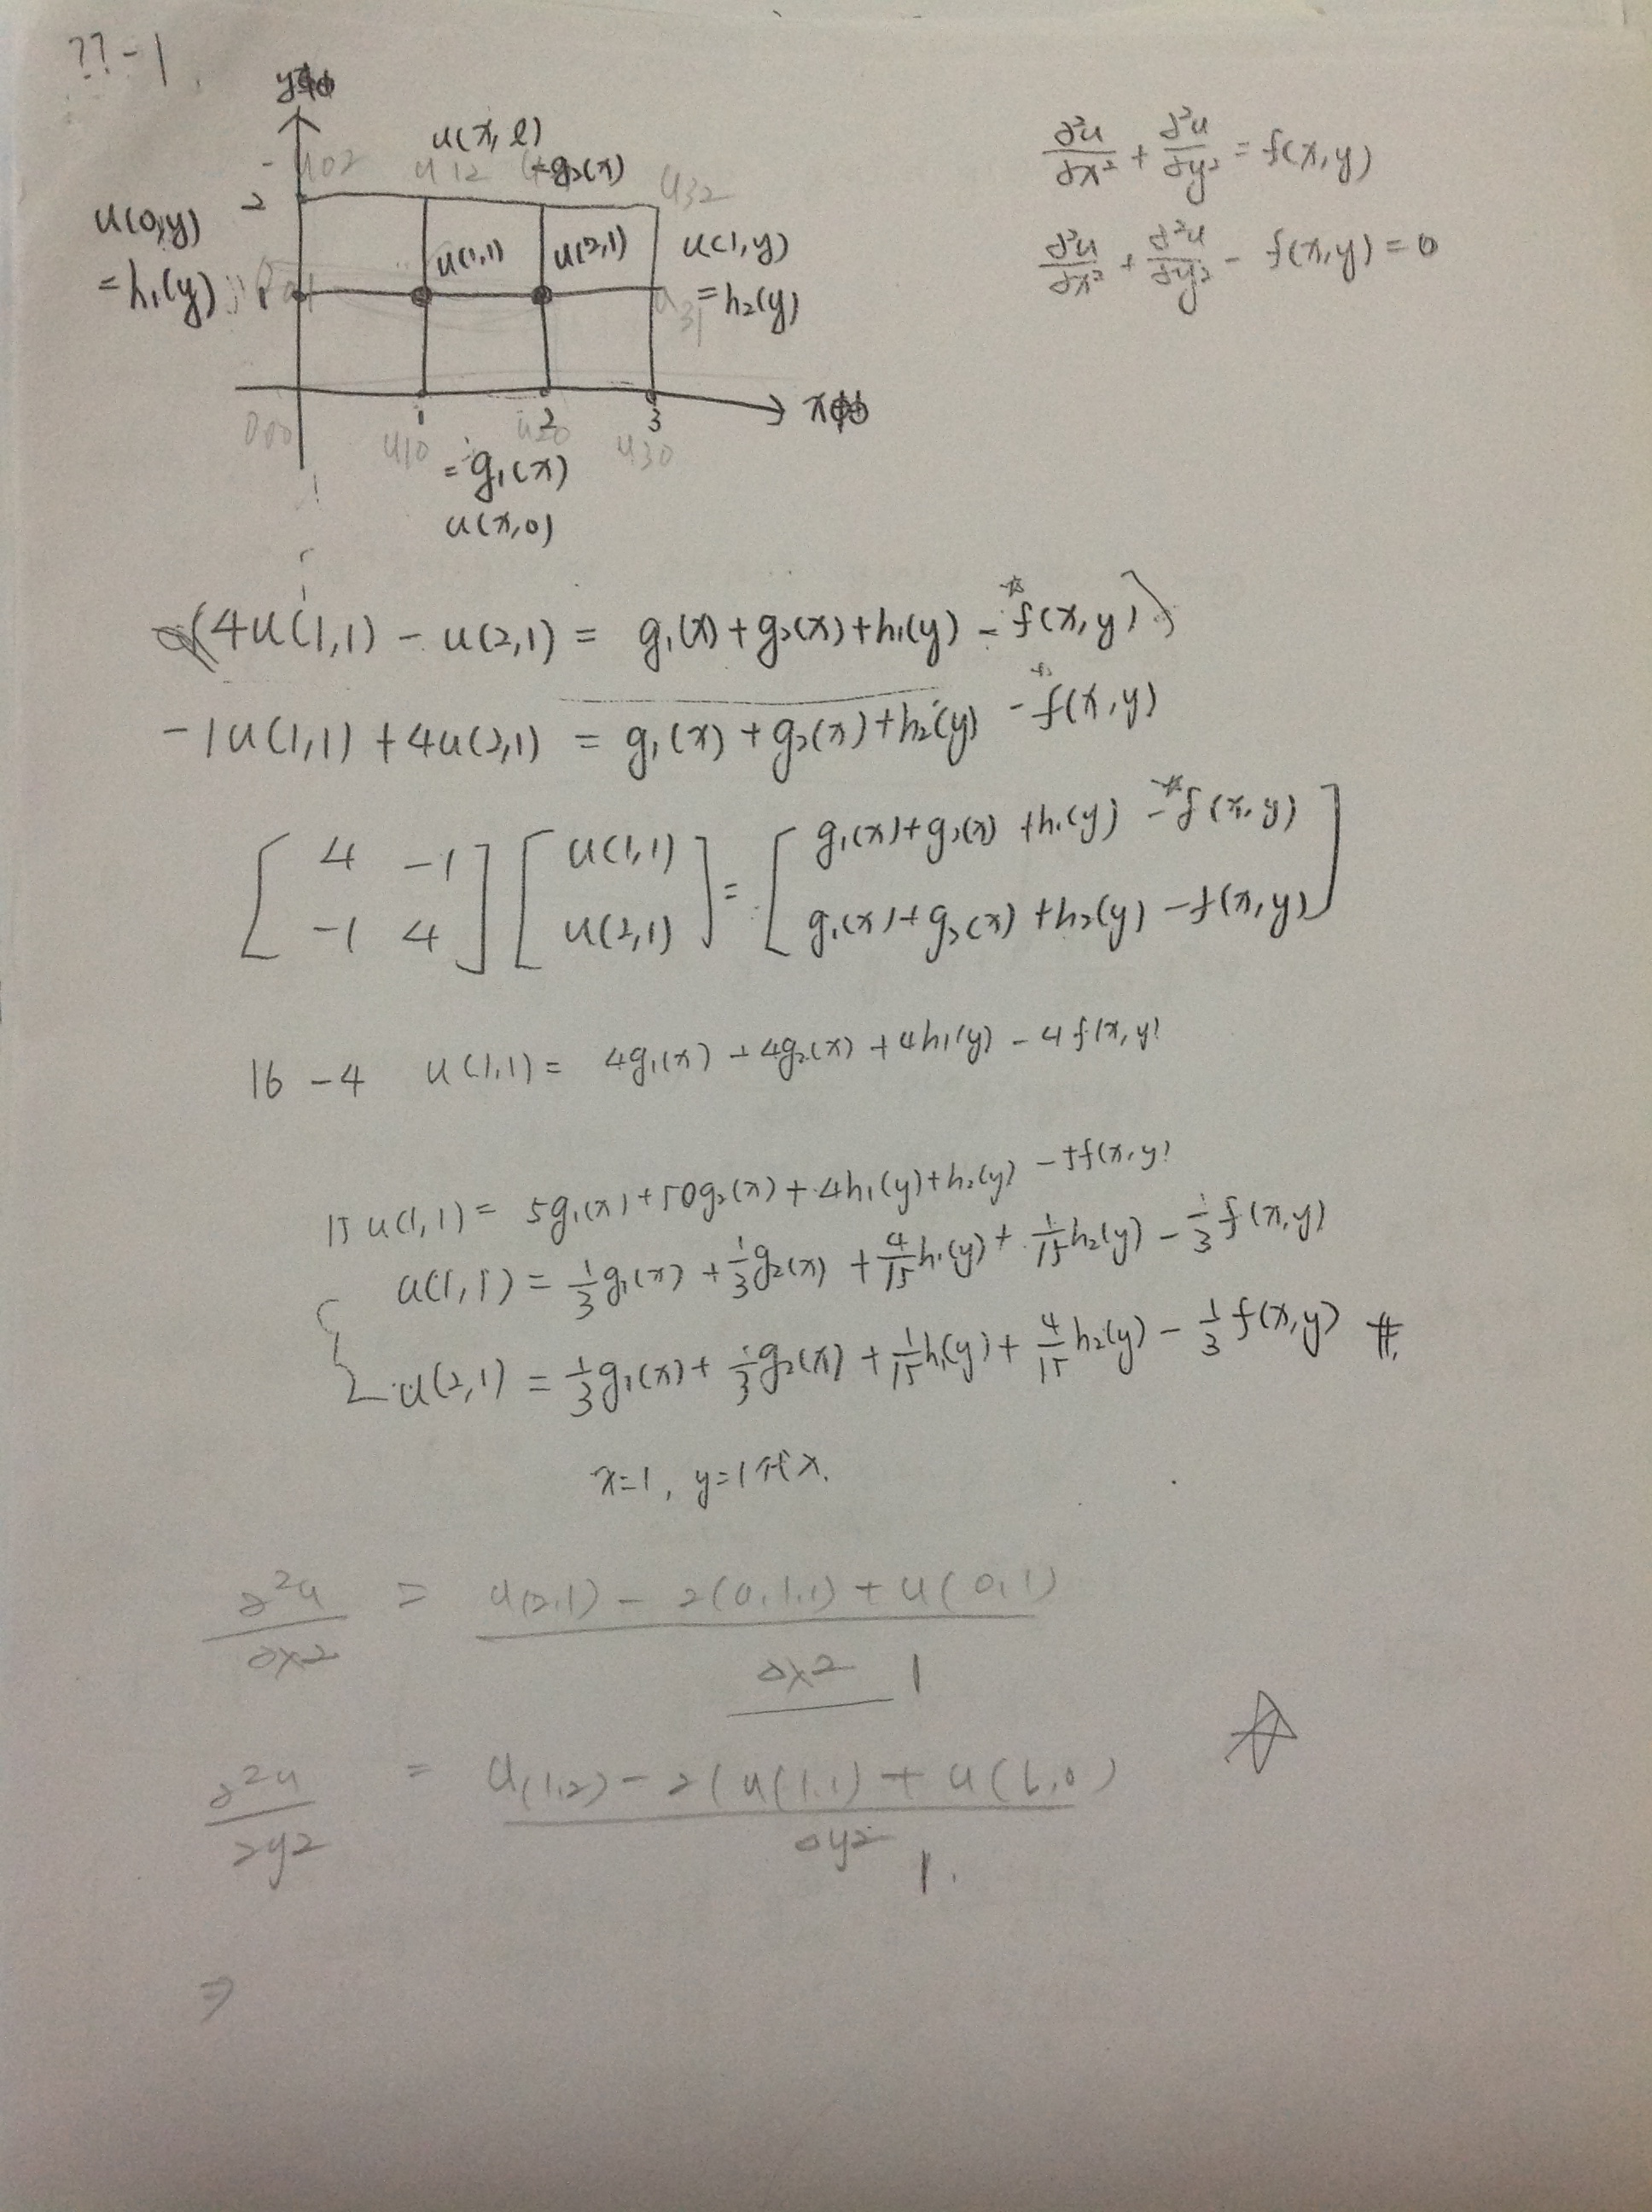 ??-1.
y
u(x, l)
=g₂(x)
u02 u12 u32
2
u(0,y)
=h₁(y)
u(1,1) u(2,1)
u(1,y)
=h₂(y)
u31
1 2 3
x
u10 u20 u30
=g₁(x)
u(x,0)
∂²u/∂x² + ∂²u/∂y² = f(x,y)
∂²u/∂x² + ∂²u/∂y² - f(x,y) = 0
4u(1,1) - u(2,1) = g₁(x)+g₂(x)+h₁(y) - f(x,y)
-1u(1,1) + 4u(2,1) = g₁(x)+g₂(x)+h₂(y) - f(x,y)
[4 -1] [u(1,1)] = [g₁(x)+g₂(x)+h₁(y) - f(x,y)]
[-1 4] [u(2,1)] [g₁(x)+g₂(x)+h₂(y) - f(x,y)]
16 -4 u(1,1) = 4g₁(x)+4g₂(x)+4h₁(y) - 4f(x,y)
15u(1,1) = 5g₁(x)+50g₂(x)+4h₁(y)+h₂(y) - 5f(x,y)
u(1,1) = 1/3 g₁(x) + 1/3 g₂(x) + 4/15 h₁(y) + 1/15 h₂(y) - 1/3 f(x,y)
u(2,1) = 1/3 g₁(x) + 1/3 g₂(x) + 1/15 h₁(y) + 4/15 h₂(y) - 1/3 f(x,y) #
x=1, y=1
∂²u/∂x² = u(2,1) - 2(0,1,1) + u(0,1) / Δx2 1
∂²u/∂y2 = u(1,2) - 2(u(1,1) + u(1,0) / Δy2 1.
⇒